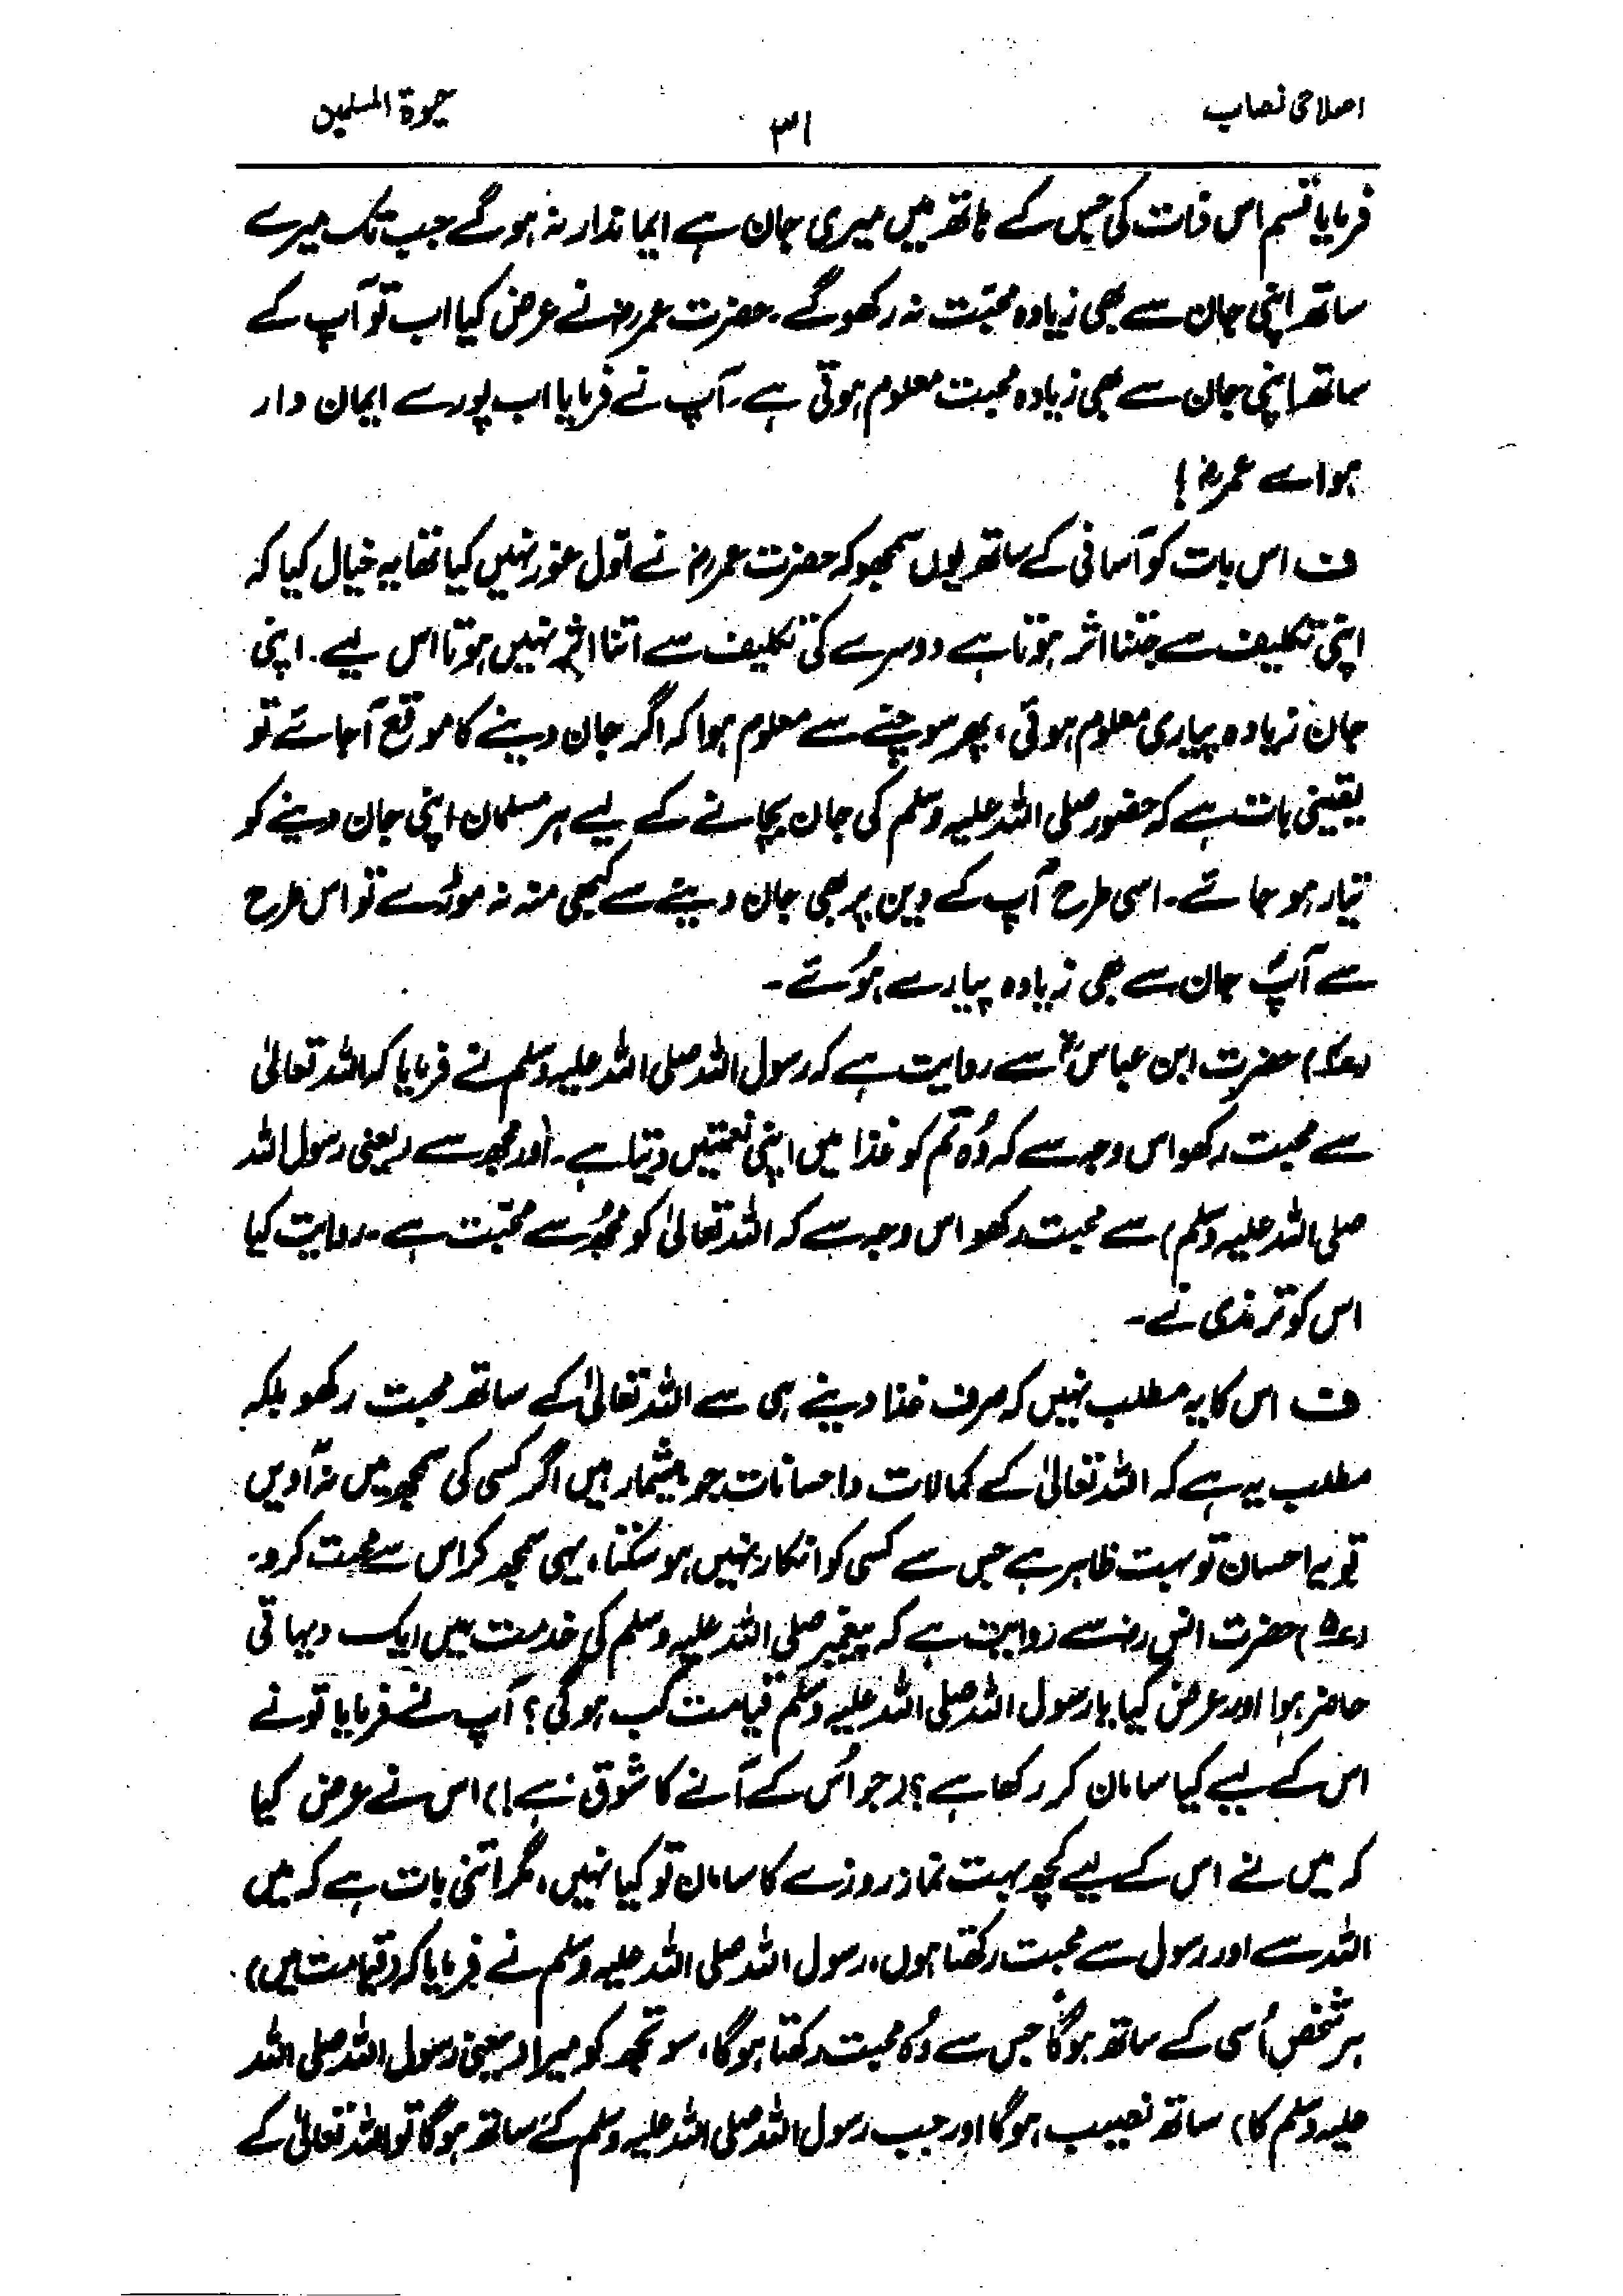 اصلاحی نصاب
۳۱
حیٰوۃ المسلمین
فرمایا قسم اس ذات کی جس کے ہاتھ میں میری جان ہے ایماندار نہ ہو گے جب تک میرے
ساتھ اپنی جان سے بھی زیادہ محبّت نہ رکھو گے۔ حضرت عمر رضؓ نے عرض کیا اب تو آپ کے
ساتھ اپنی جان سے بھی زیادہ محبت معلوم ہوتی ہے۔ آپ نے فرمایا اب پورے ایمان دار
ہو اے عمرؓ!
ف اس بات کو آسانی کے ساتھ یوں سمجھو کہ حضرت عمرؓ نے اوّل غور نہیں کیا تھا یہ خیال کیا کہ
اپنی تکلیف سے جتنا اثر ہوتا ہے دوسرے کی تکلیف سے اتنا اثر نہیں ہوتا اس لیے۔ اپنی
جان زیادہ پیاری معلوم ہوئی، پھر سوچنے سے معلوم ہوا کہ اگر جان دینے کا موقع آجائے تو
یقینی بات ہے کہ حضور صلی اللہ علیہ وسلم کی جان بچانے کے لیے ہر مسلمان اپنی جان دینے کو
تیار ہو جائے۔ اسی طرح آپ کے دین پر بھی جان دینے سے کبھی منہ نہ موڑے تو اس طرح
سے آپؐ جان سے بھی زیادہ پیارے ہوئے۔
(۴) حضرت ابن عباسؓ سے روایت ہے کہ رسول اللہ صلی اللہ علیہ وسلم نے فرمایا کہ اللہ تعالیٰ
سے محبت رکھو اس وجہ سے کہ وُہ تم کو غذا میں اپنی نعمتیں دیتا ہے۔ اور مجھ سے (یعنی رسول اللہ
صلی اللہ علیہ وسلم) سے محبت رکھو اس وجہ سے کہ اللہ تعالیٰ کو مجھُ سے محبّت ہے۔ روایت کیا
اس کو ترمذی نے۔
ف اس کا یہ مطلب نہیں کہ صرف غذا دینے ہی سے اللہ تعالیٰ کے ساتھ محبت رکھو بلکہ
مطلب یہ ہے کہ اللہ تعالیٰ کے کمالات و احسانات جو بیشمار ہیں اگر کسی کی سمجھ میں نہ آدیں
تو یہ احسان تو بہت ظاہر ہے جس سے کسی کو انکار نہیں ہو سکتا، یہی سمجھ کر اس سے محبت کرو۔
(۵) حضرت انس رضؓ سے روایت ہے کہ پیغمبر صلی اللہ علیہ وسلم کی خدمت میں ایک دیہاتی
حاضر ہوا اور عرض کیا یا رسول اللہ صلی اللہ علیہ وسلم قیامت کب ہو گی؟ آپ نے فرمایا تو نے
اس کے لیے کیا سامان کر رکھا ہے؟ (جو اُس کے آنے کا شوق ہے!) اس نے عرض کیا
کہ میں نے اس کے لیے کچھ بہت نماز روزے کا سامان تو کیا نہیں، مگر اتنی بات ہے کہ میں
اللہ سے اور رسول سے محبت رکھتا ہوں، رسول اللہ صلی اللہ علیہ وسلم نے فرمایا کہ (قیامت میں)
ہر شخص اُسی کے ساتھ ہو گا جس سے وُہ محبت رکھتا ہو گا، سو تجھ کو میرا (یعنی رسول اللہ صلی اللہ
علیہ وسلم کا) ساتھ نصیب ہو گا اور جب رسول اللہ صلی اللہ علیہ وسلم کے ساتھ ہو گا تو اللہ تعالیٰ کے